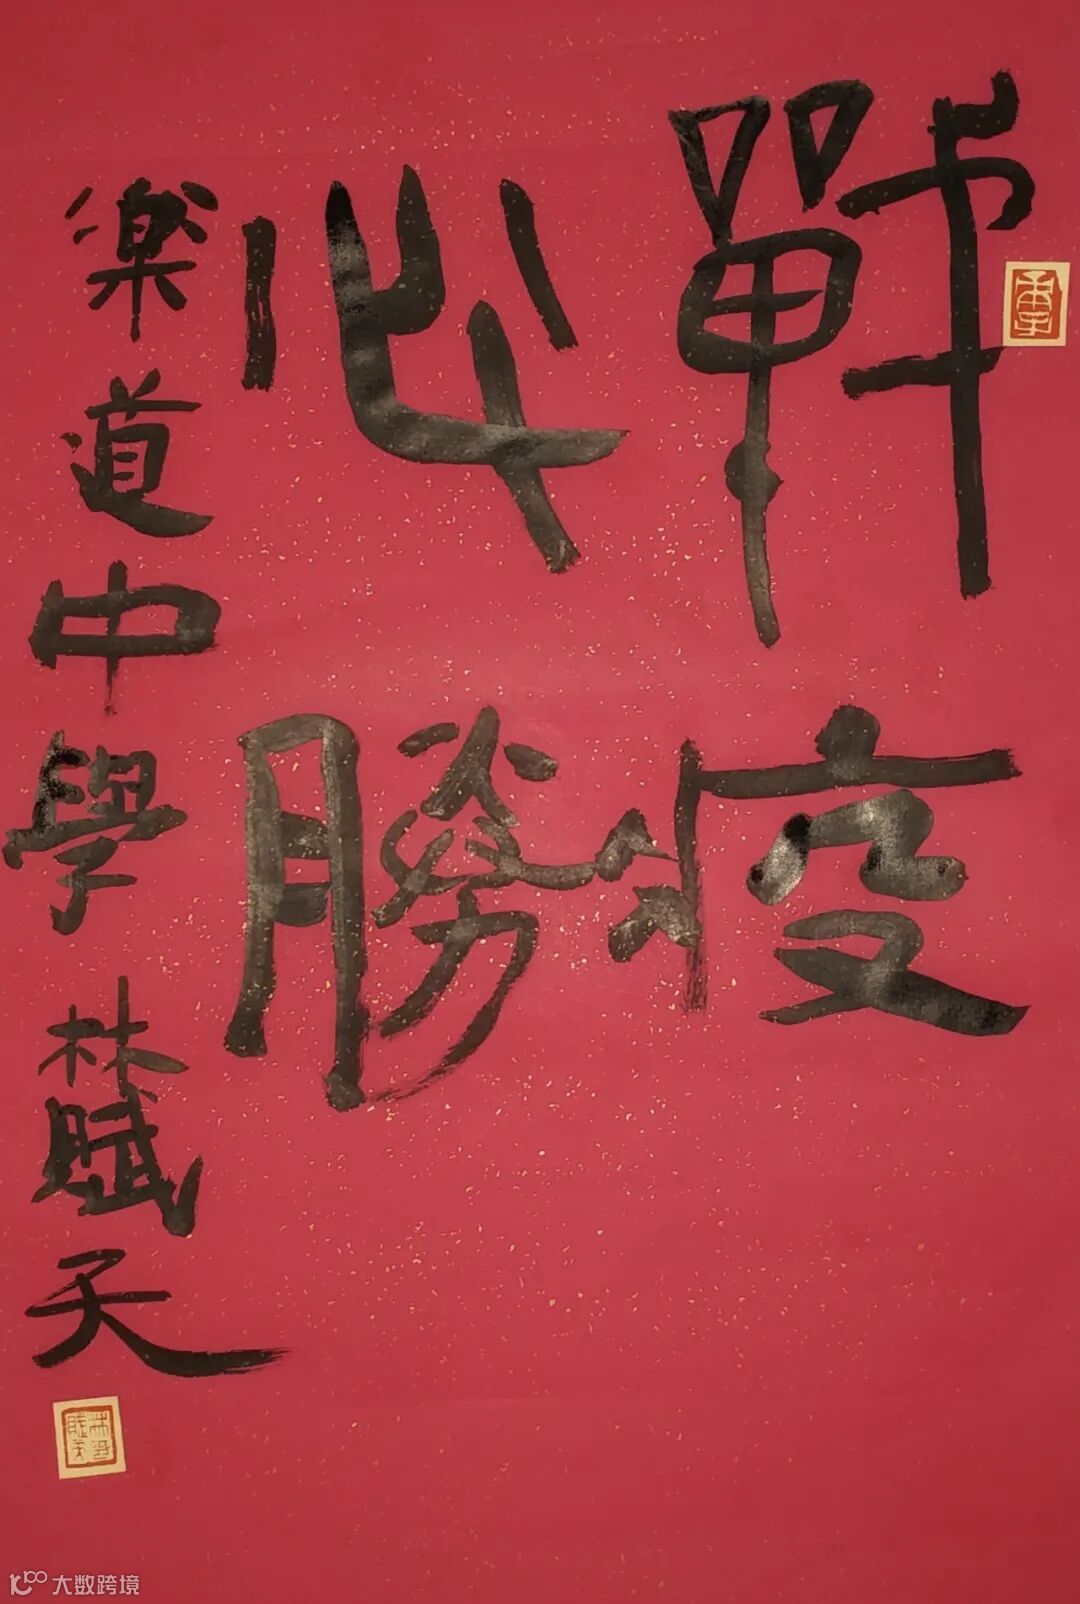 戰疫
必勝
楽道中學 林賦天
大数跨境